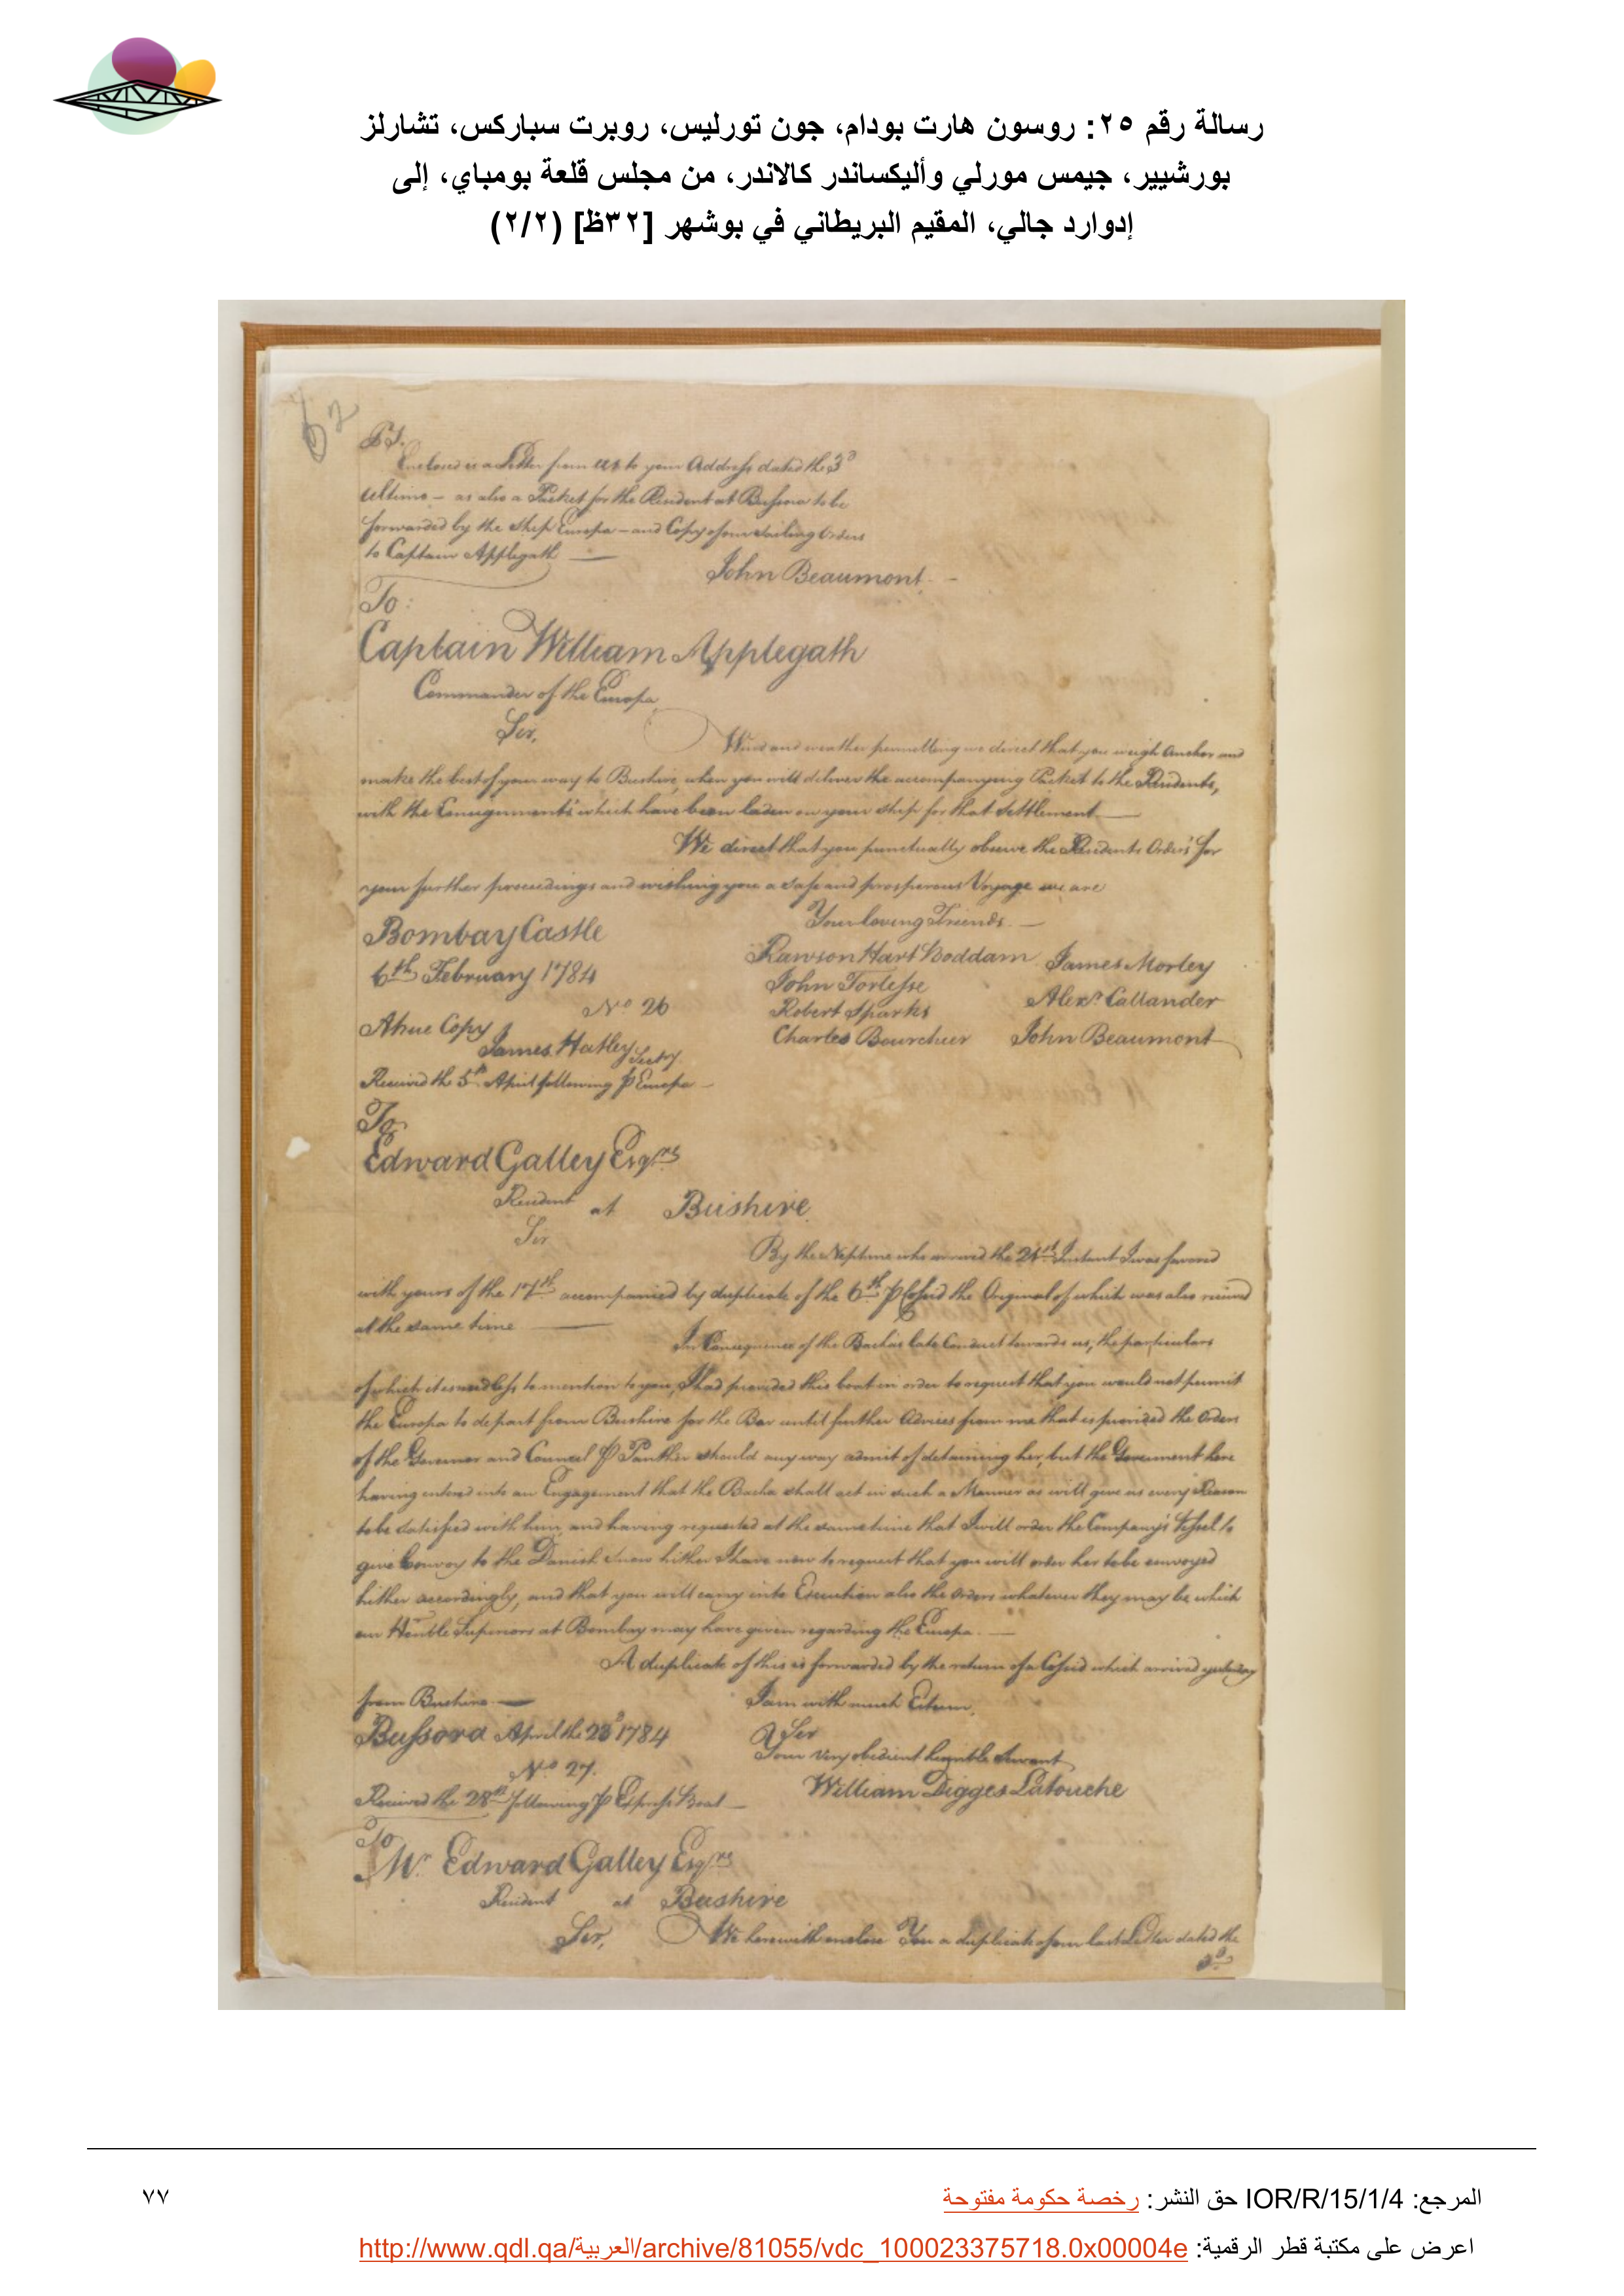 رسالة رقم ٢٥: روسون هارت بودام، جون تورليس، روبرت سباركس، تشارلز
بورشيير، جيمس مورلي وأليكساندر كالاندر، من مجلس قلعة بومباي، إلى
إدوارد جالي، المقيم البريطاني في بوشهر [٣٢ظ] (٢/٢)
62
P.S.
Enclosed is a Letter from us to your Address dated the 3d
Ultimo - as also a Packet for the Resident at Bussora to be
forwarded by the Ship Europa - and Copy of our Sailing Orders
to Captain Applegath
John Beaumont. -
To:
Captain William Applegath
Commander of the Europa
Sir,
Wind and weather permitting we direct that you weigh Anchor and
make the best of your way to Bushire, when you will deliver the accompanying Packet to the Residents,
with the Consignments which have been laden on your Ship for that Settlement
We direct that you punctually observe the Residents Orders for
your further proceedings and wishing you a safe and prosperous Voyage we are
Your loving Friends. -
Bombay Castle
6th February 1784
Rawson Hart Boddam James Morley
John Torlesse
Alexr. Callander
No 26
Robert Sparks
A true Copy
Charles Bourchier John Beaumont
James Hatley Secty.
Received the 5th April following P Europa -
To
Edward Galley Esqrs
Resident at Bushire
Sir
By the Neptune who arrived the 21st Instant I was favored
with yours of the 17th accompanied by duplicate of the 6th P Cossid the Original of which was also received
at the same time
In Consequence of the Bacha's late Conduct towards us, the particulars
of which it is needless to mention to you, I had provided this boat in order to request that you would not permit
the Europa to depart from Bushire for the Bar until further Advices from me that is provided the Orders
of the Governor and Council P Panther should any way admit of detaining her, but the Government here
having entered into an Engagement that the Bacha shall act in such a Manner as will give us every Reason
to be satisfied with him, and having requested at the same time that I will order the Company's Vessel to
give Convoy to the Danish Snow hither I have now to request that you will order her to be convoyed
hither accordingly, and that you will carry into Execution also the Orders whatever they may be which
our Honble Superiors at Bombay may have given regarding the Europa. -
A duplicate of this is forwarded by the return of a Cossid which arrived yesterday
from Bushire -
I am with much Esteem,
Bussora April the 23d 1784
Sir
Your very obedient humble Servant
No 27.
William Digges Latouche
Received the 28th following P Express Boat -
To
Mr Edward Galley Esqrs
Resident at Bushire
Sir, We herewith enclose You a duplicate of our last Letter dated the
3d
المرجع: IOR/R/15/1/4 حق النشر: رخصة حكومة مفتوحة
٧٧
اعرض على مكتبة قطر الرقمية: http://www.qdl.qa/العربية/archive/81055/vdc_100023375718.0x00004e